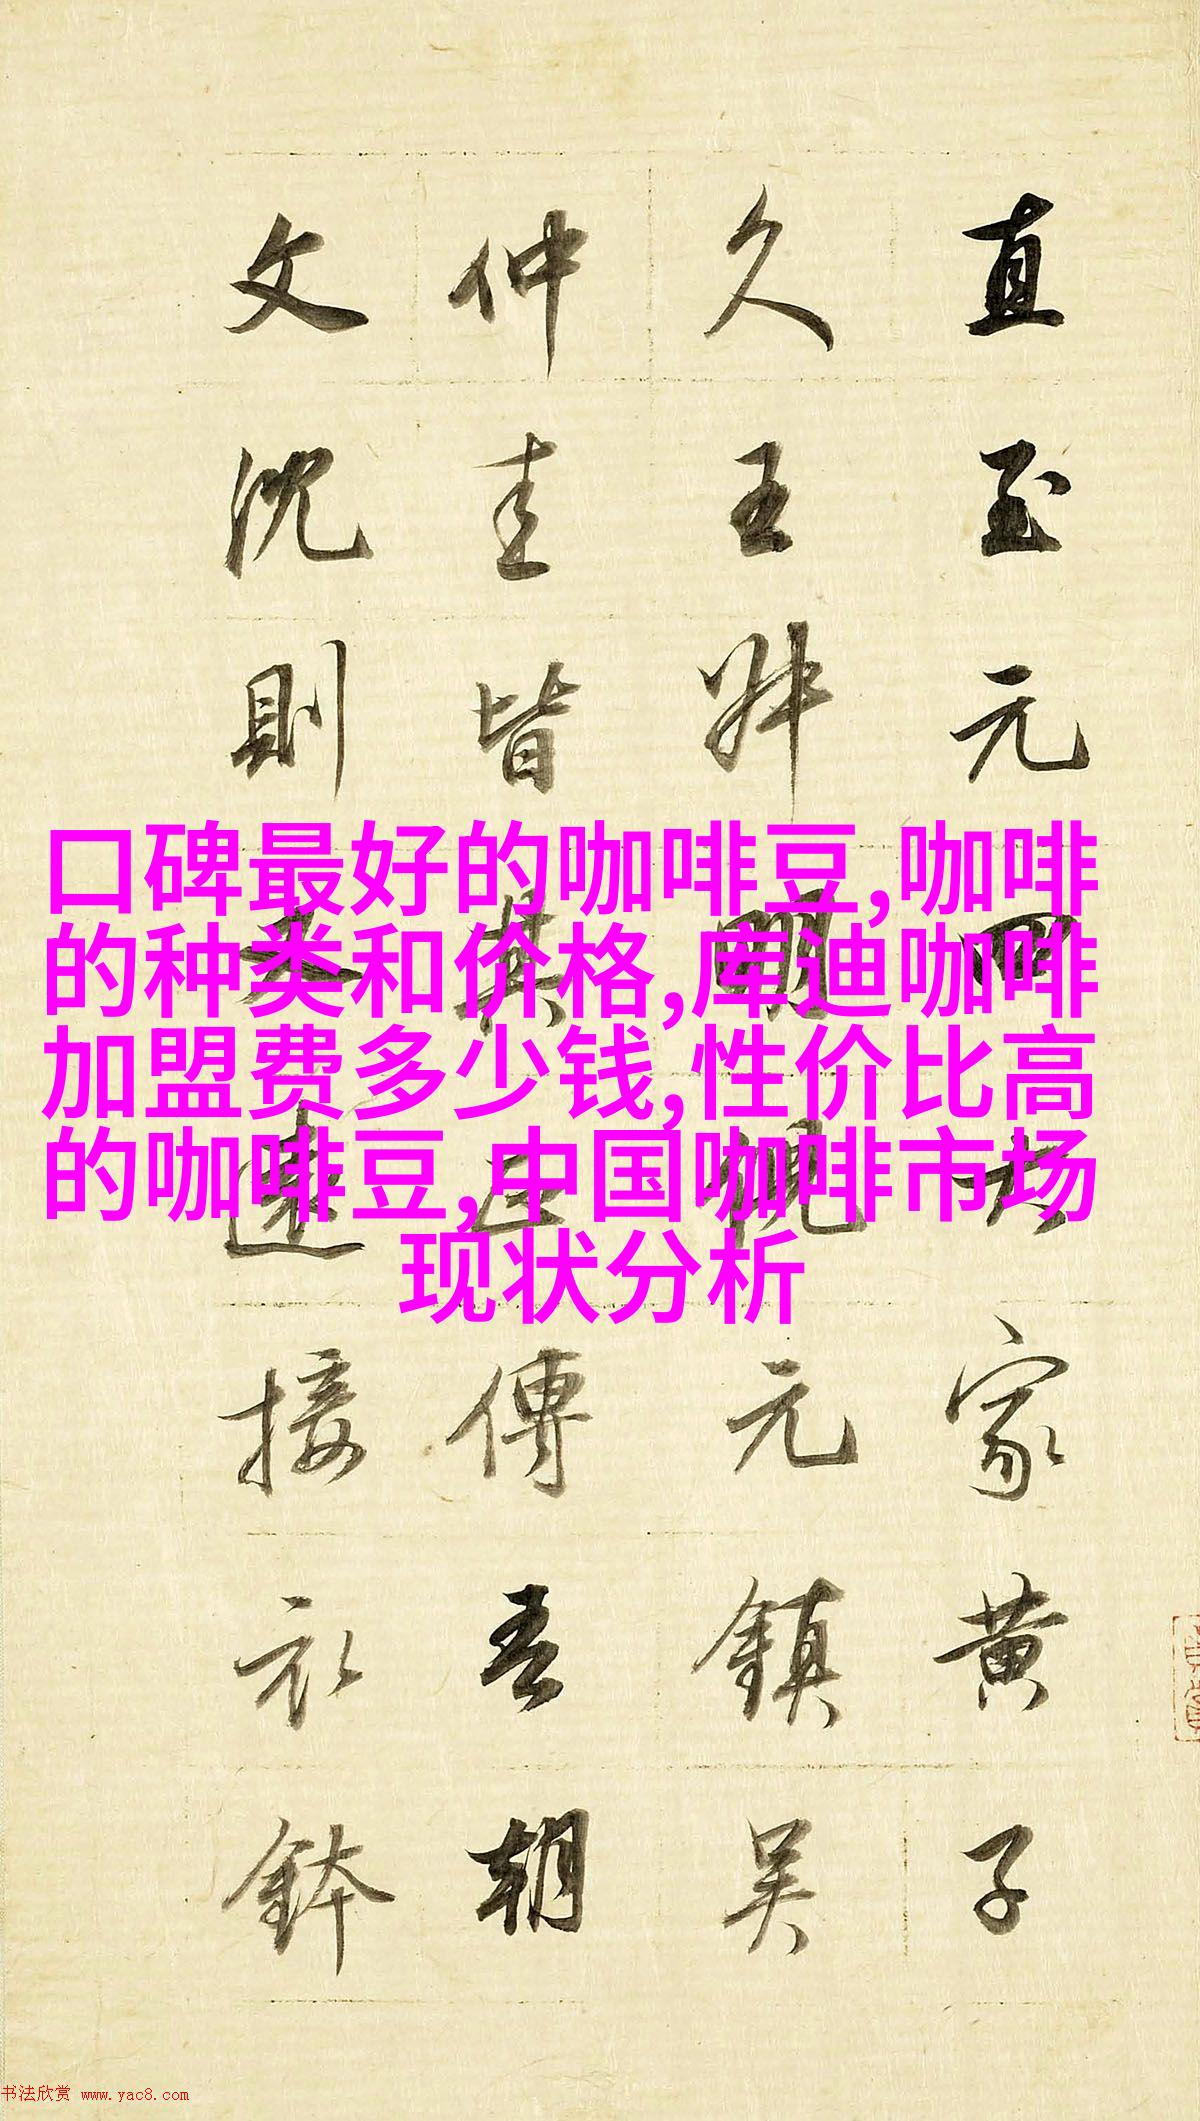 直至元四大家黄子
久王叔明倪元鎮吴
仲圭皆其正傳吾朝
文沈則又遠接衣鉢
口碑最好的咖啡豆,咖啡
的种类和价格,库迪咖啡
加盟费多少钱,性价比高
的咖啡豆,中国咖啡市场
现状分析
书法欣赏 www.yac8.com